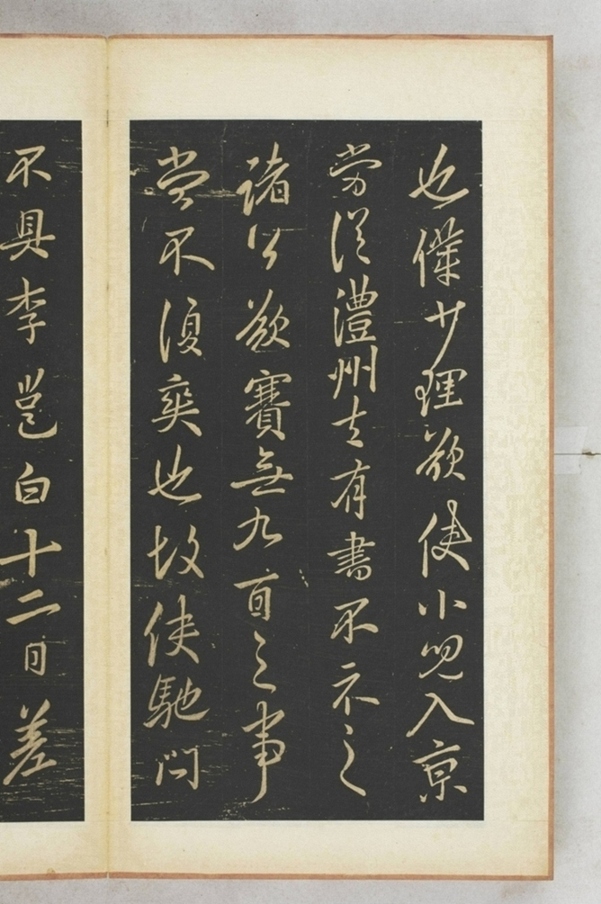 也僕廿理欲使小兒入京
當從澧州去有書不示之
諸公欲賽無九百之事
當不復奕也故使馳問
不具李邕白十二日差